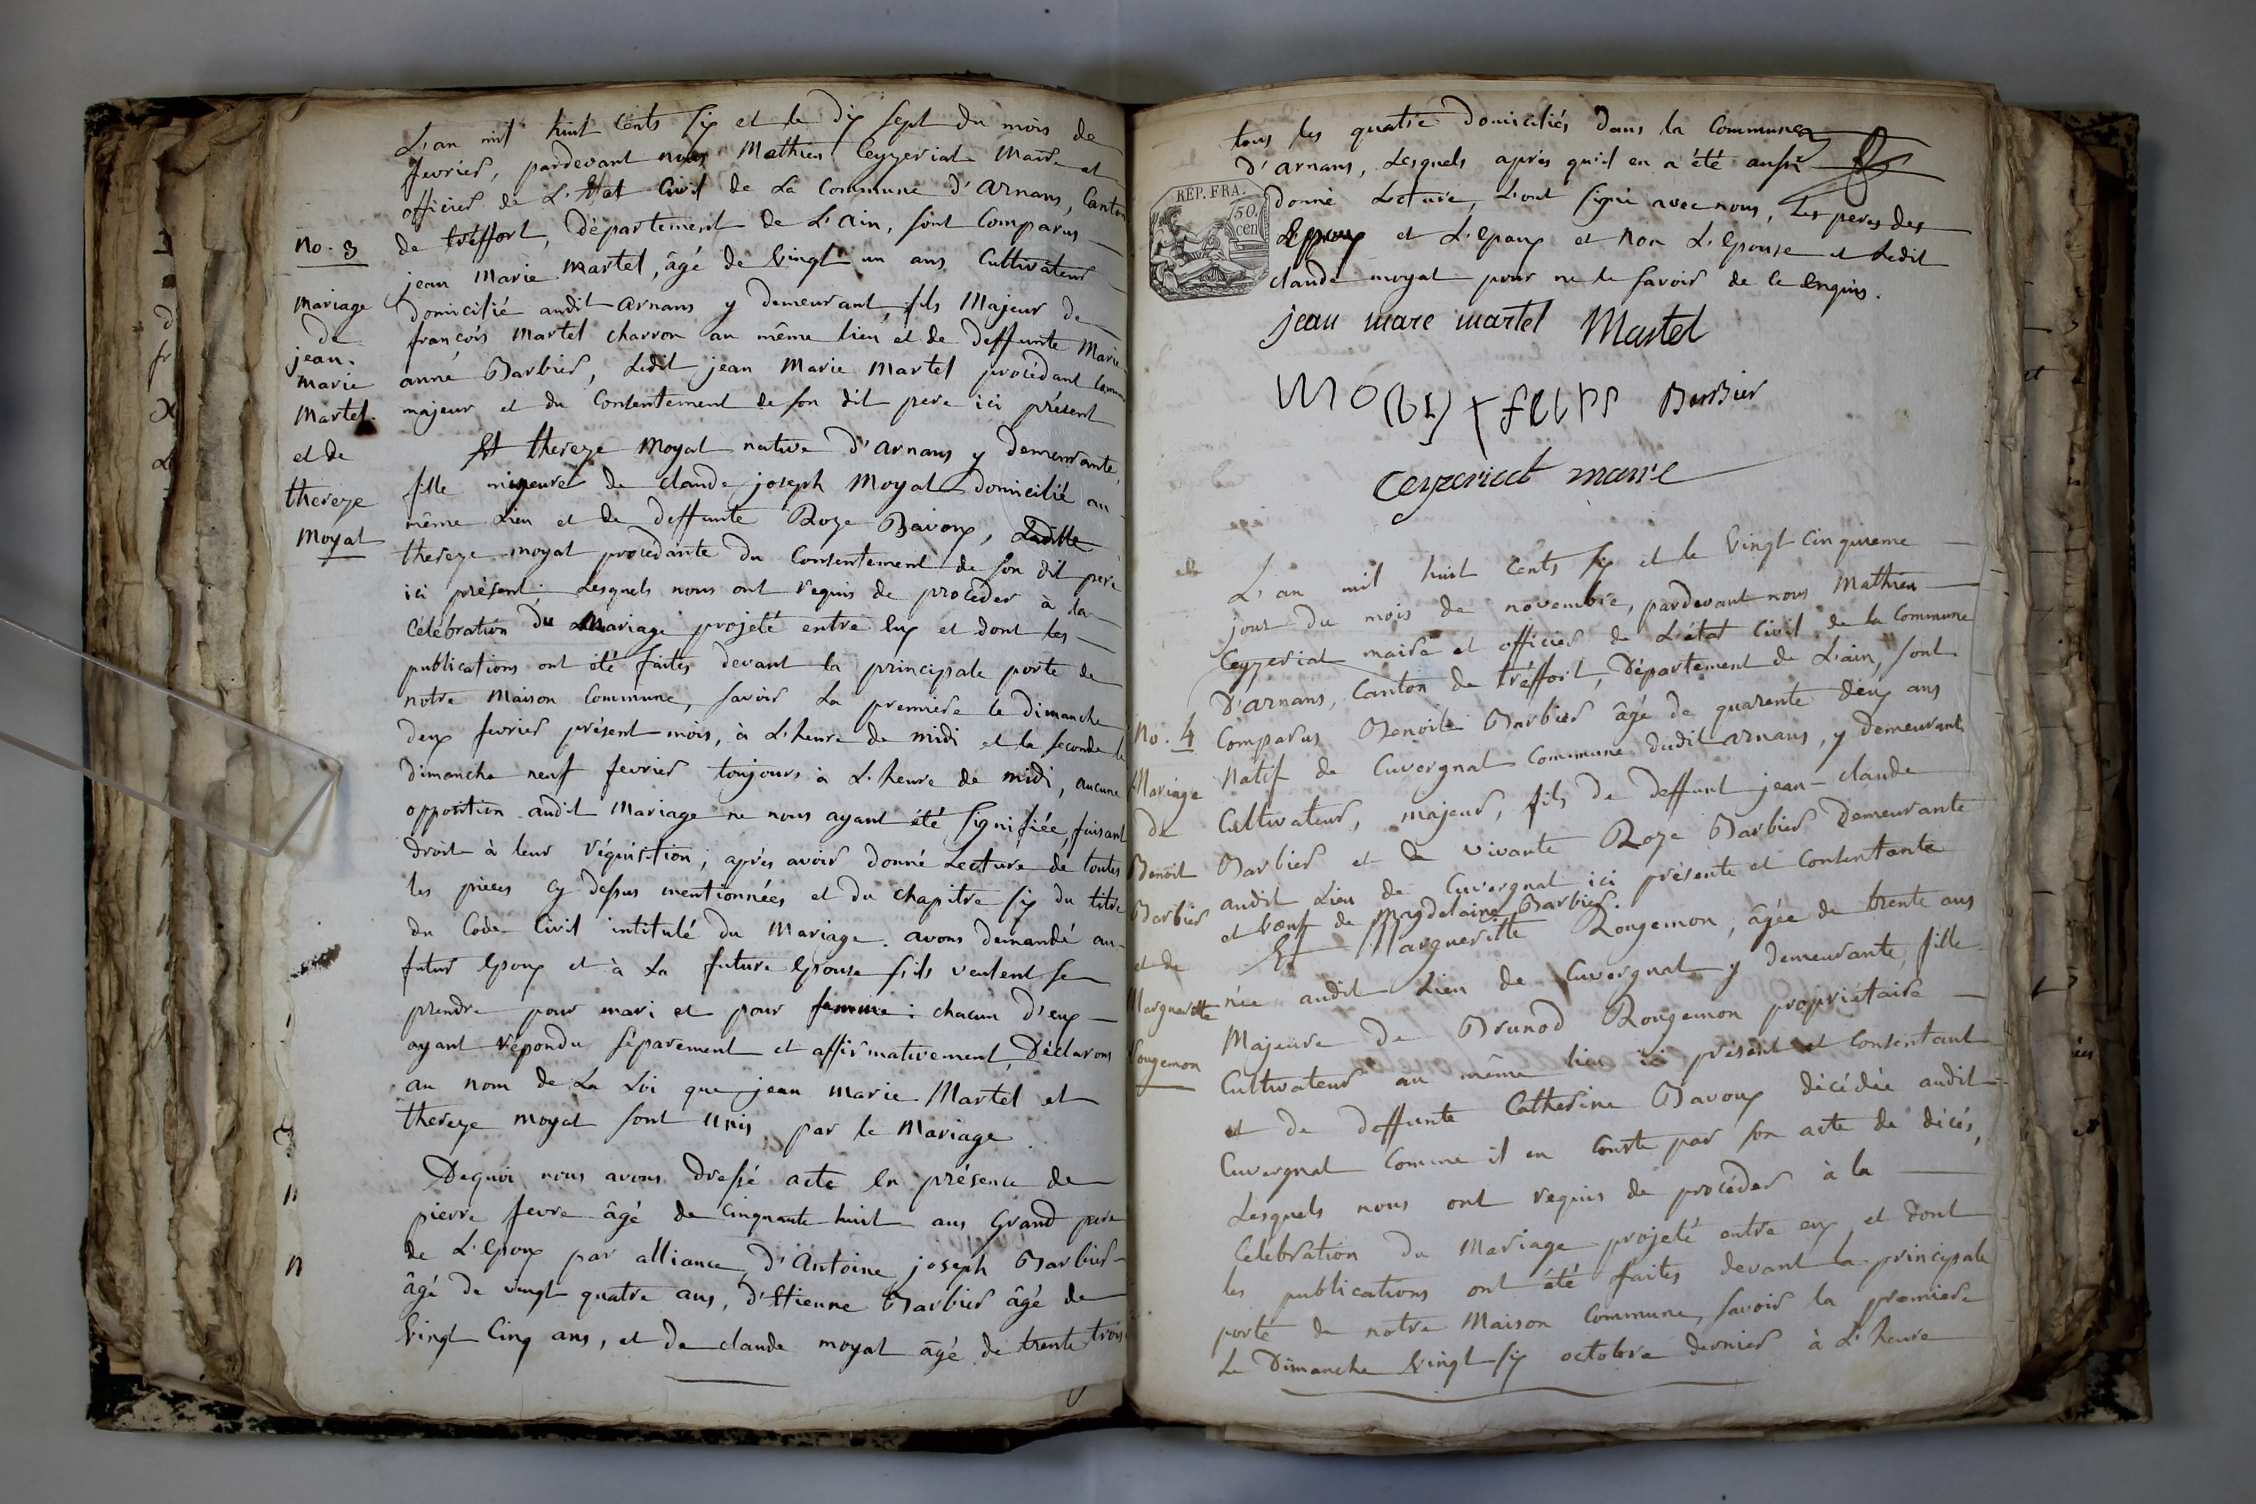 L'an mil huit cents six et le dix sept du mois de
fevrier, pardevant nous Mathieu Ceyzeriat Maire et
officier de L'Etat Civil de La Commune d'arnans, Canton
de treffort, Département de L'ain, sont Comparus
No. 3
jean Marie Martel, âgé de vingt un ans Cultivateur
Mariage
de
jean.
marie
Martel.
et de
thereze
Moyat
domicilié audit arnans y demeurant, fils Majeur de
françois Martel charron au même lieu et de deffunte Marie
anne Barbier, Ledit jean Marie Martel procédant Comme
majeur et du Consentement de son dit pere ici présent
Et thereze Moyat native d'arnans y demeurante,
fille mineure de claude joseph Moyat domicilié au
même Lieu et de deffunte Roze Bavoux, Ladite
thereze moyat procédante du Consentement de son dit pere
ici présent; Lesquels nous ont requis de procéder à la
Célébration du Mariage projeté entre eux et dont les
publications ont été faites devant la principale porte de
notre Maison Commune, savoir La premiere le dimanche
deux fevrier présent mois, à L'heure de midi et la seconde le
dimanche neuf fevrier toujours à L'heure de midi, aucune
opposition audit Mariage ne nous ayant été signifiée, faisant
droit à leur réquisition, après avoir donné Lecture de toutes
les pieces cy dessus mentionnées et du chapitre six du titre
du Code Civil intitulé du Mariage. avons demandé au
futur Epoux et à La future Epouse s'ils veulent se
prendre pour mari et pour femme: chacun d'eux
ayant répondu séparement et affirmativement, Déclarons
au nom de La Loi que jean marie Martel et
thereze moyat sont unis par le Mariage
Dequoi nous avons dressé acte En présence de
pierre fevre âgé de Cinquante huit ans Grand pere
de L'Epoux par alliance, d'Antoine joseph Barbier
âgé de vingt quatre ans, d'Etienne Barbier âgé de
vingt Cinq ans, et de claude moyat âgé de trente trois
tous les quatre domiciliés dans la Commune
d'arnans, Lesquels après qu'il en a été aussi
donné Lecture, L'ont signé avec nous, Les peres des
REP. FRA.
50.
cen
Epoux et L'Epoux et non L'Epouse et Ledit
claude moyat pour ne le savoir de ce Enquis.
jean mare martel Martel
Barbier
Ceyzeriat maire
L'an mil huit Cents six et le vingt cinquieme
jour du mois de novembre, pardevant nous Mathieu
Ceyzeriat maire et officier de L'état Civil de la Commune
D'arnans, Canton de tréffort, Département de L'ain, sont
No. 4
Comparus Benoit Barbier âgé de quarente deux ans
Mariage
de
Benoit
Barbier
et de
Marguerite
Rougemon
Natif de Cuvergnat Commune dudit arnans, y demeurant
Cultivateur, majeur, fils de deffunt jean-claude
Barbier et de vivante Roze Barbier Demeurante
audit Lieu de Cuvergnat ici présente et Consentante
et veuf de Magdelaine Barbier.
Et Margueritte Rougemon, âgée de trente ans
née audit Lieu de Cuvergnat y demeurante, fille
Majeure de Brunod Rougemon propriétaire
Cultivateur au même lieu ici présent et Consentant
et de deffunte Catherine Bavoux décédée audit
Cuvergnat Comme il en Conste par son acte de décés,
Lesquels nous ont requis de procéder à la
Celebration du Mariage projeté entre eux, et dont
les publications ont été faites devant la principale
porte de notre Maison Commune, savoir la premiere
Le Dimanche vingt six octobre dernier à L'heure